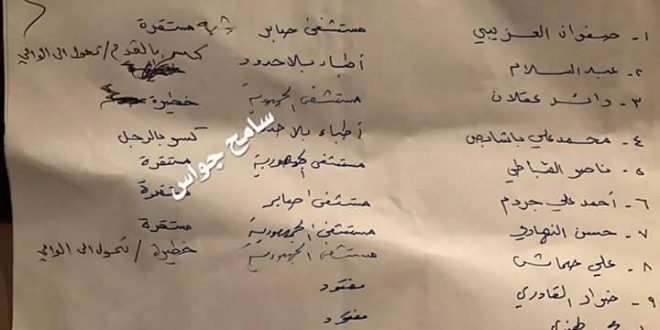 ١- صفوان العزيبي مستشفى صابر شبه مستقرة
٢- عبدالسلام أطباء بلاحدود كسر بالقدم / تحول الى الوالي
٣- رائد عقلان مستشفى الجمهورية خطيرة
٤- محمد علي باشابص أطباء بلا كسر بالرجل
٥- ناصر القباطي مستشفى الجمهورية مستقرة
٦- أحمد علي جردم مستشفى صابر مستقرة
٧- حسن النهاري مستشفى الجمهورية مستقرة
٨- علي مستشفى الجمهورية خطيرة / تحول الى الوالي
٩- القادري مفقود
مفقود
سامح جواس